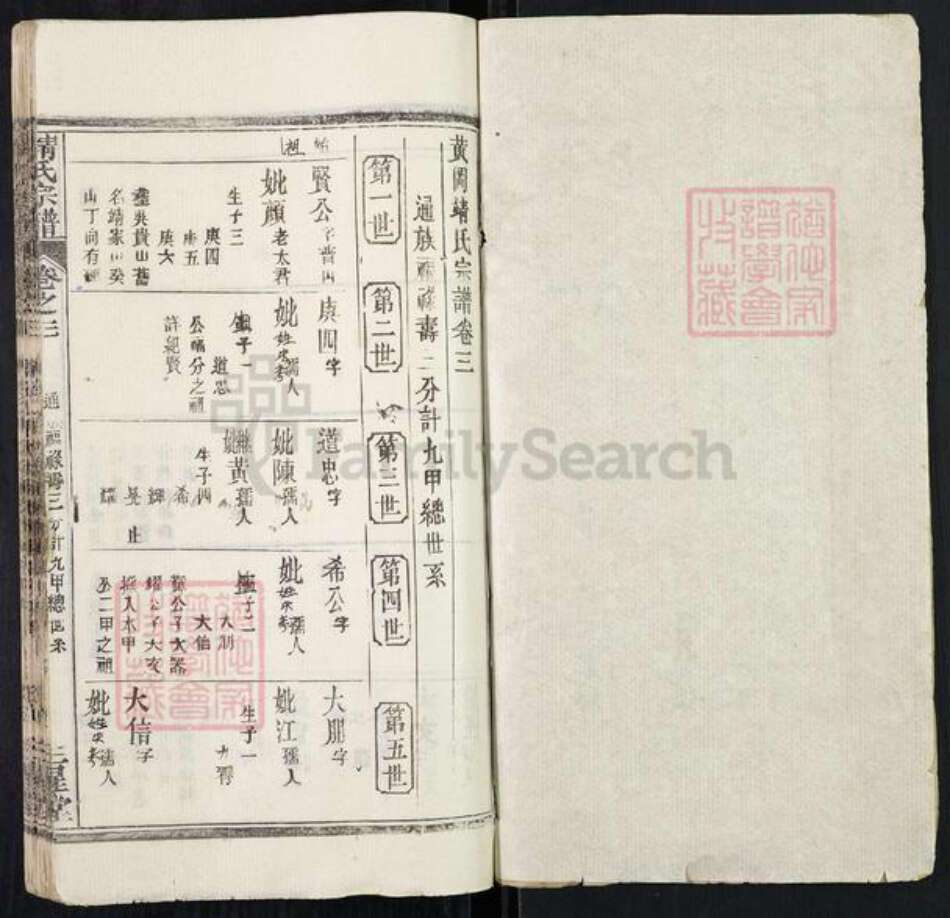 黃岡靖氏宗譜卷三
通族福祿壽三分計九甲總世系
第一世
第二世
第三世
第四世
第五世
始祖
賢公字晋
妣顏老太君
生子三
庚四
庚五
庚六
葬吳貴山舊
名靖家山癸
山丁向有碑
庚四字
妣姓失考孺人
生子一
道忠
公嗣分之祖
許紹賢
道忠字
妣陳孺人
繼妣黃孺人
生子四
希
輝
旻止
耀
希公字
妣姓失考孺人
生子二
大朋
大信
輝公子大器
耀公子大
撥入水甲
公二甲之祖
大朋字
妣江孺人
生子一
大信字
妣姓失考孺人
靖氏宗譜
卷之三
通福祿壽三分計九甲總世系
三星堂
FamilySearch
譜學會
收藏